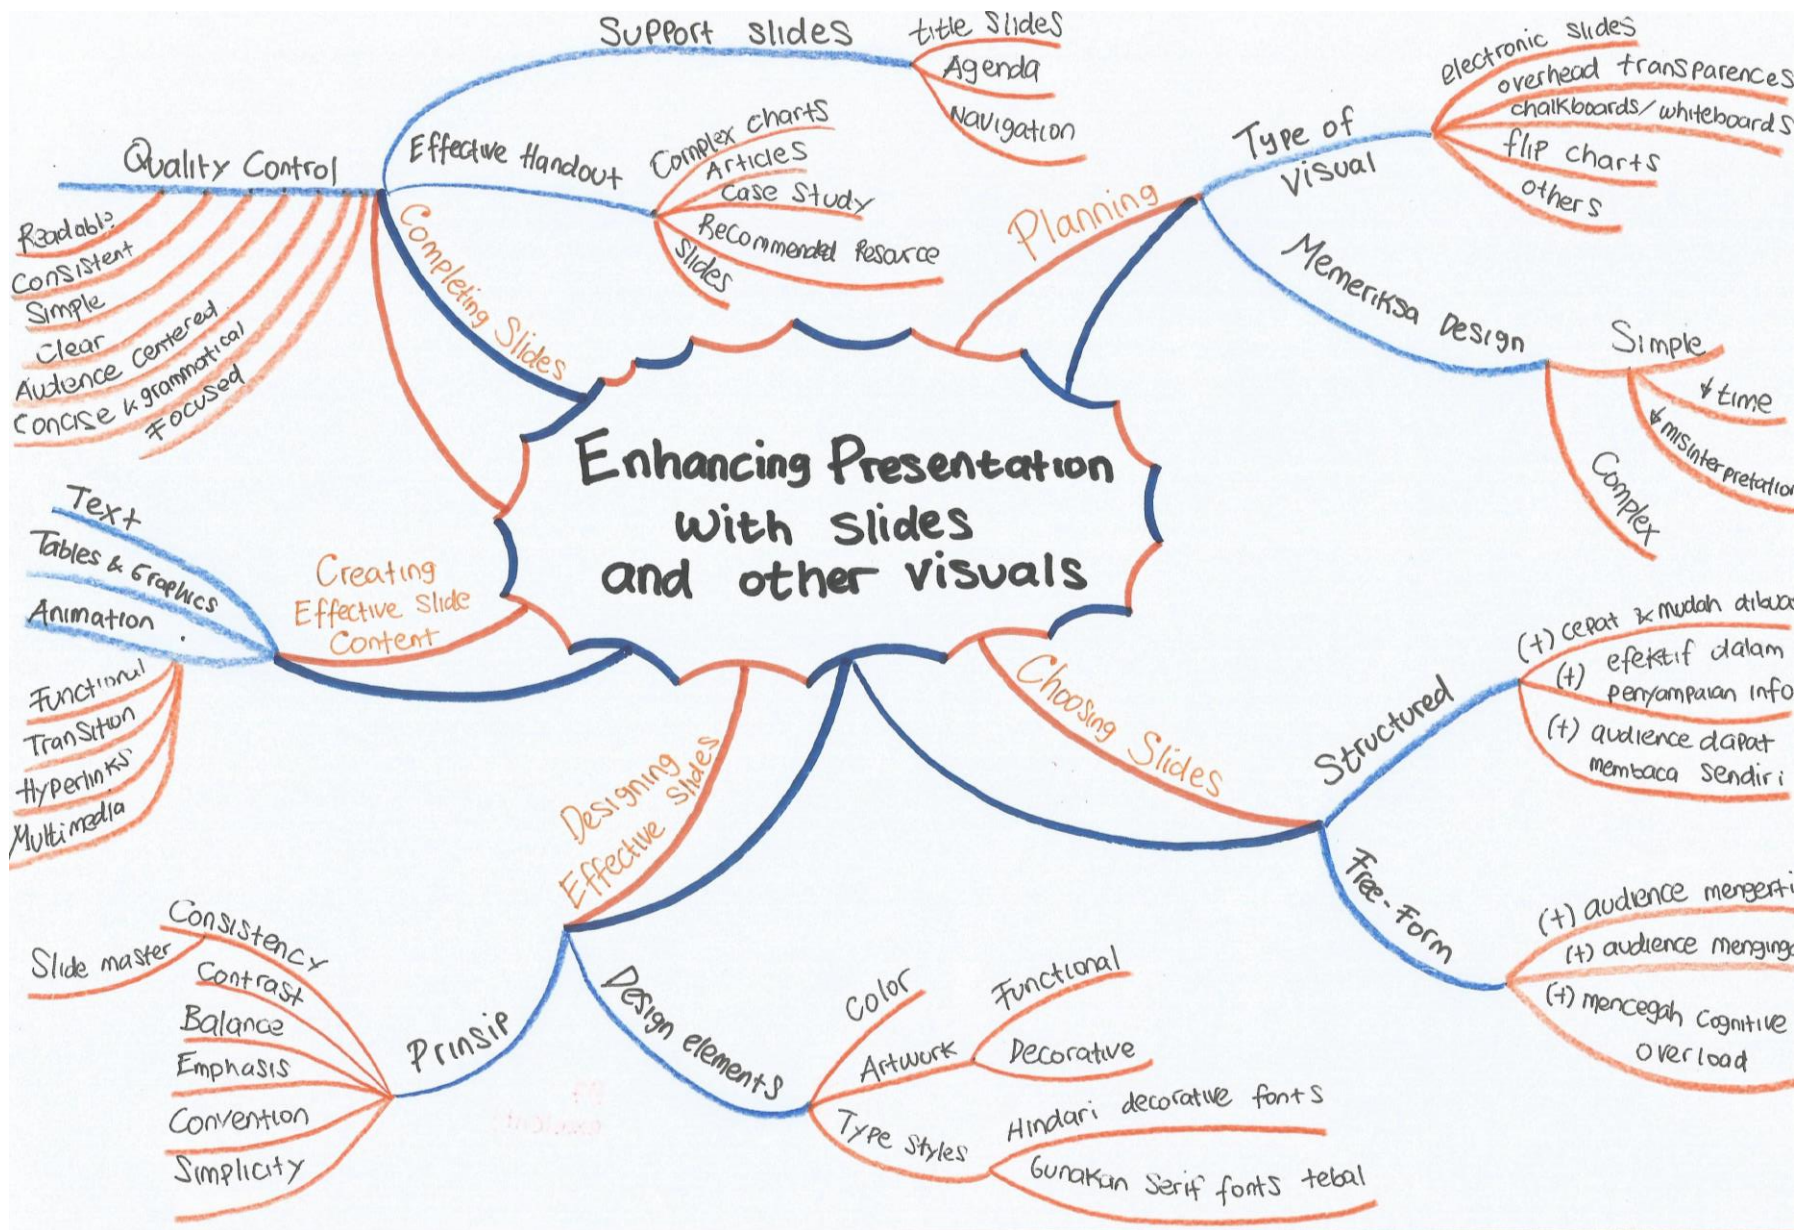 Enhancing Presentation
with slides
and other visuals
Planning
Type of
visual
electronic slides
overhead transparences
chalkboards/whiteboards
flip charts
others
Memeriksa Design
Simple
↓ time
↓ misinterpretation
Complex
Choosing Slides
Structured
(+) cepat & mudah dibua
(+) efektif dalam
penyampaian info
(+) audience dapat
membaca sendiri
Free-Form
(+) audience mengerti
(+) audience menginga
(+) mencegah cognitive
overload
Designing
Effective slides
Prinsip
Consistency
Slide master
Contrast
Balance
Emphasis
Convention
Simplicity
Design elements
Color
Artwork
Functional
Decorative
Type styles
Hindari decorative fonts
Gunakan serif fonts tebal
Creating
Effective slide
Content
Text
Tables & Graphics
Animation
Functional
Transition
Hyperlinks
Multimedia
Completing Slides
Quality Control
Readable
Consistent
Simple
Clear
Audience centered
Concise & grammatical
Focused
Effective Handout
Complex charts
Articles
Case Study
Recommended Resource
Slides
Support slides
title slides
Agenda
Navigation